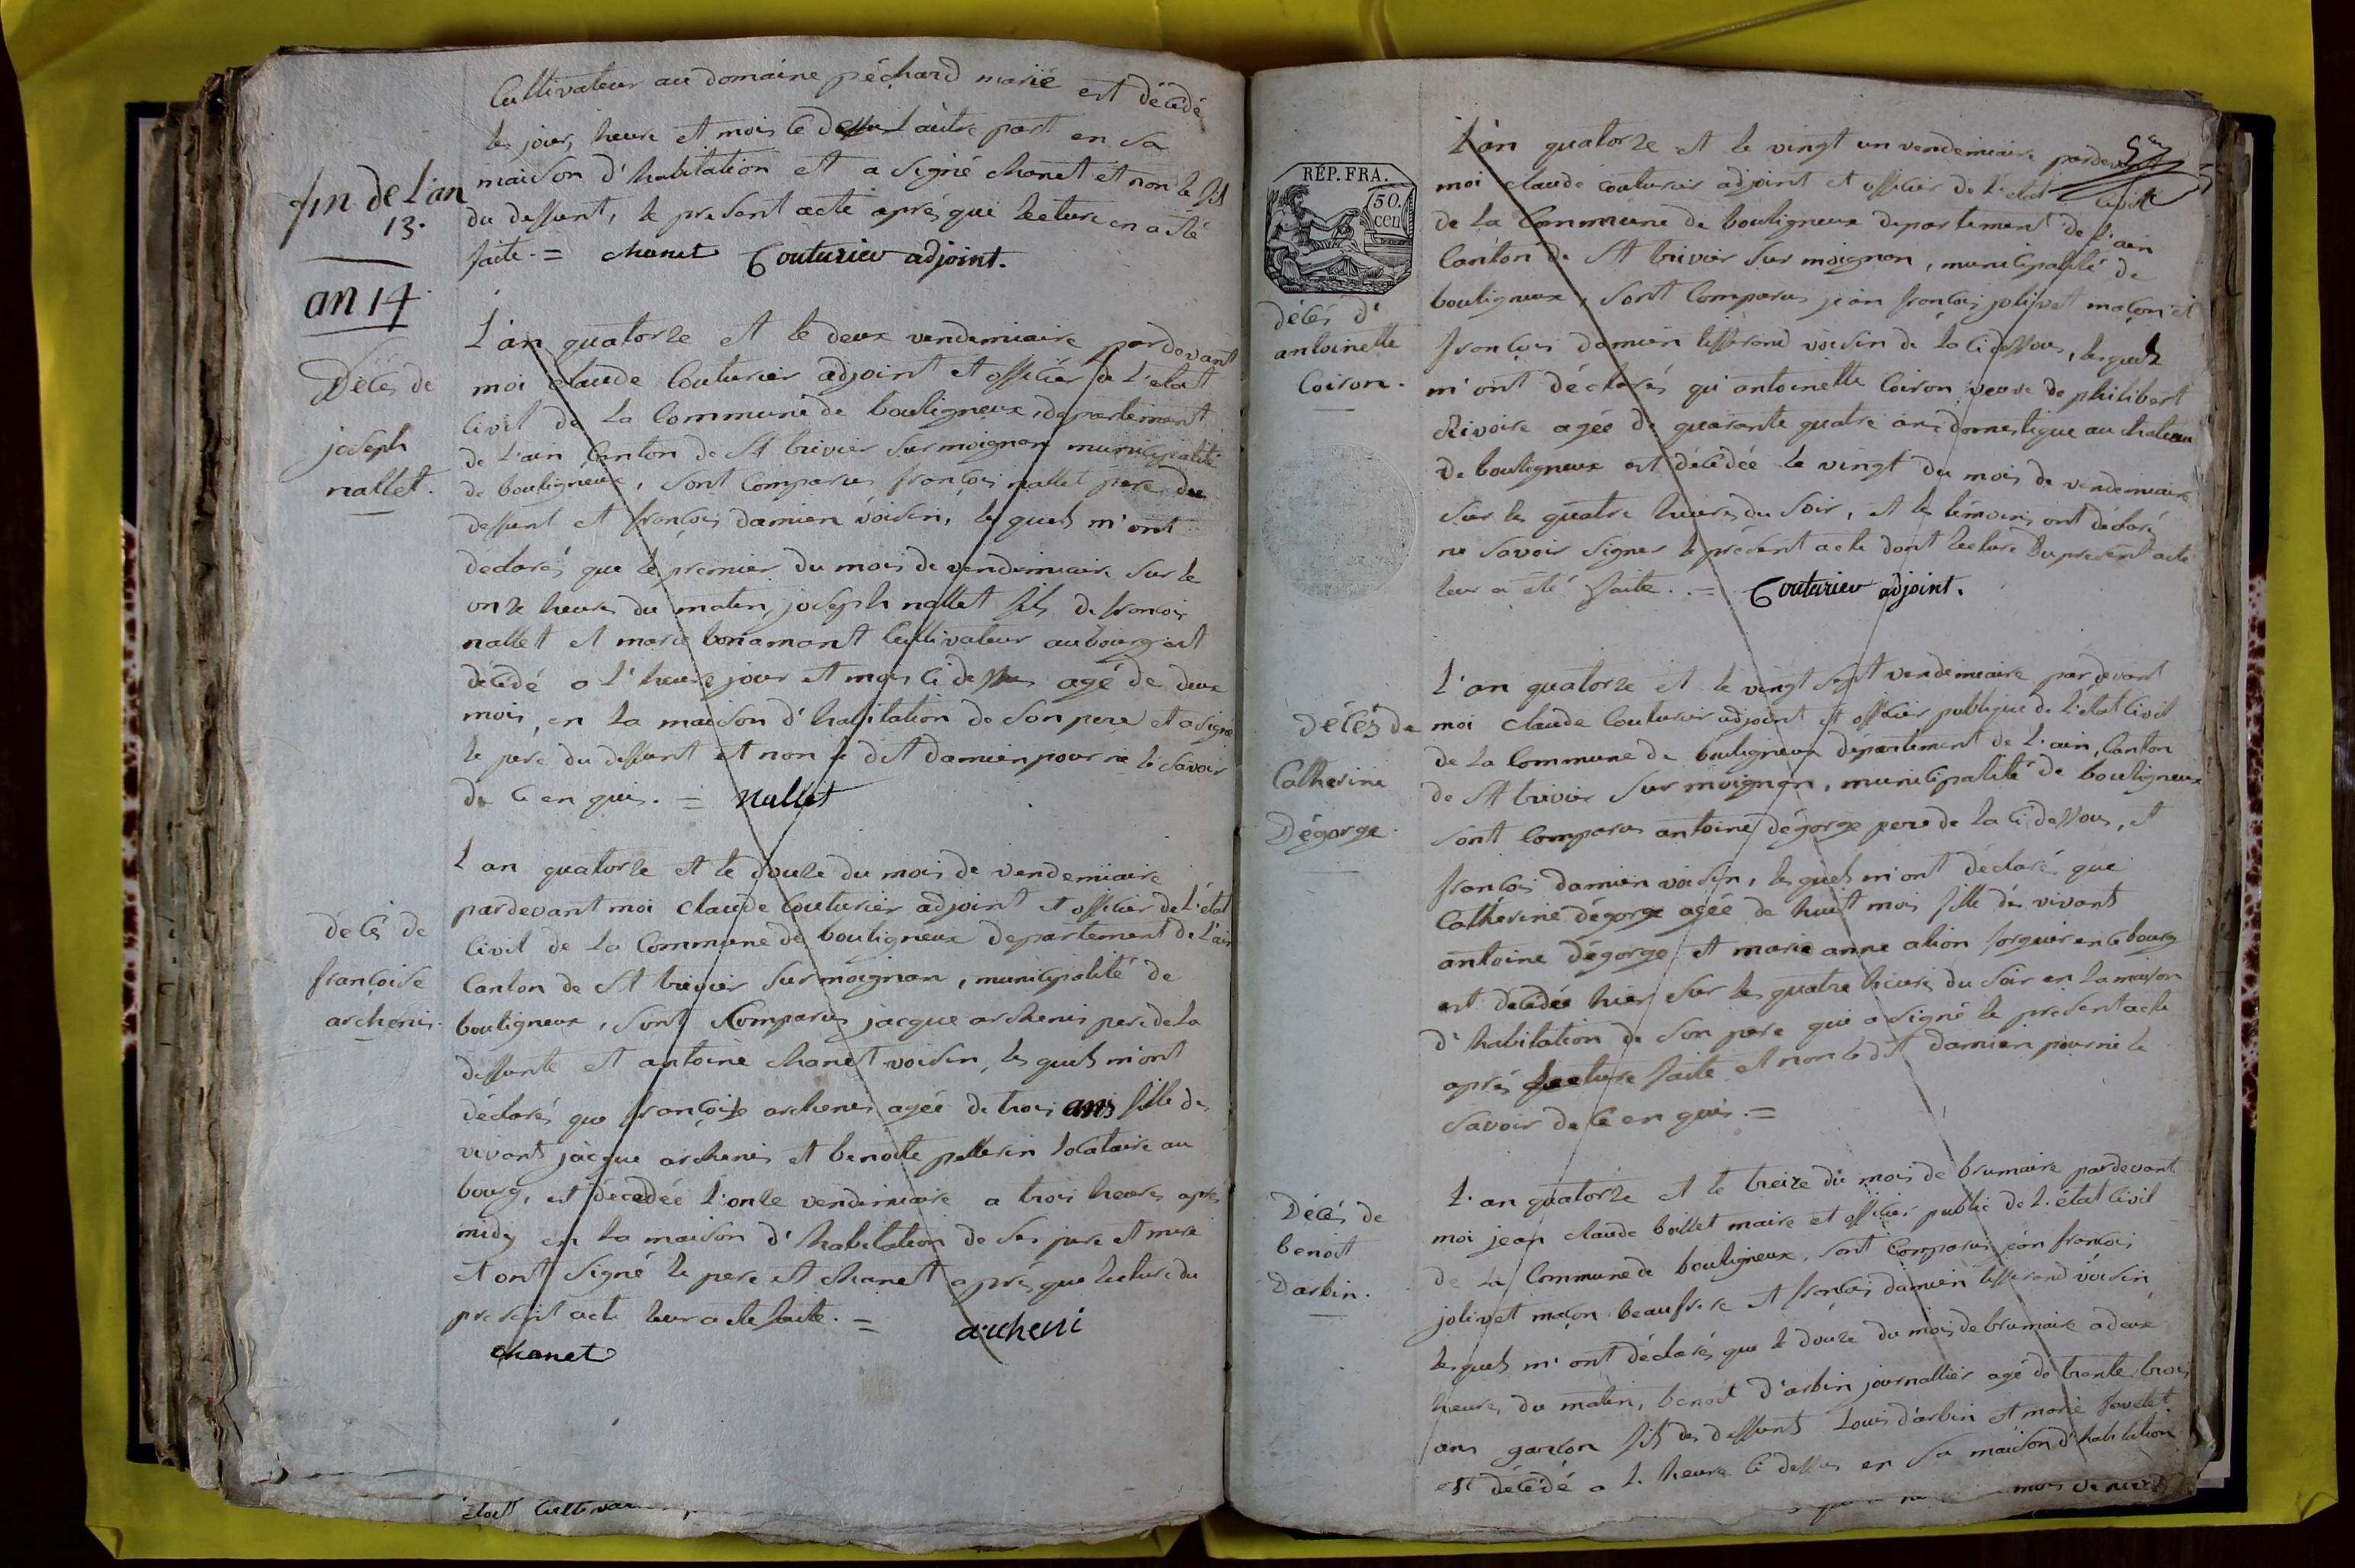 Cultivateur au domaine péchard marié est décédé
les jour, heure et mois de l'autre part en sa
maison d'habitation et a signé chanet et non le fils
du deffunt, le present acte après que lecture en a été
faite. = chanet Couturier adjoint.
fin de L'an
13.
an 14
Décès de
joseph
nallet.
L'an quatorze et le deux vendemiaire pardevant
moi claude Couturier adjoint et officier de L'etat
Civil de La Commune de bouligneux, departement
de L'ain Canton de St trivier sur moignan municipalité
de bouligneux, sont Comparus françois nallet pere du
deffunt et françois damien voisin, les quels m'ont
déclarés que le premier du mois de vendemiaire sur le
onze heures du matin, joseph nallet fils de francois
nallet et marie bonamant Cultivateur au bourg est
décédé a L'heure jour et mois Ci dessus agé de deux
mois, en La maison d'habitation de son pere et a signé
le pere du deffunt et non le dit damien pour ne le savoir
de Ce en quis. = Nallet
décés de
françoise
archenis.
L'an quatorze et le douze du mois de vendemiaire
pardevant moi claude Couturier adjoint et officier de L'état
Civil de La Commune de bouligneux departement de L'ain
Canton de St trivier sur moignan, municipalité de
bouligneux, sont Comparus jacque archenis pere de La
deffunte et antoine chanet voisin, les quels m'ont
déclarés que françoise archenis agée de trois ans fille des
vivants jacque archenis et benoite pellerin locataire au
bourg, est decedée L'onze vendemiaire a trois heures après
midy en La maison d'habitation de ses pere et mere
et ont signé le pere et chanet après que lecture du
present acte leur a été faite. = archeni
chanet
étoit Cultivateur
55
RÉP. FRA.
50.
cen
décés d'
antoinette
Coiron.
L'an quatorze et le vingt un vendemiaire pardevant
moi claude Couturier adjoint et officier de L'etat Civil
de La Commune de bouligneux departement de L'ain
Canton de St trivier sur moignan, municipalité de
bouligneux, sont Comparus jean françois jolivet maçon et
françois damien tisserand voisin de la Ci dessous, lesquels
m'ont déclarés qu'antoinette Coiron veuve de philibert
Rivoire agée de quarante quatre ans domestique au chateau
de bouligneux est décédée le vingt du mois de vendemiaire
sur les quatre heures du soir, et les témoins ont déclaré
ne savoir signer le présent acte dont lecture du present acte
leur a été faite. = Couturier adjoint.
Décés de
Catherine
Dégorge.
L'an quatorze et le vingt sept vendemiaire pardevant
moi claude Couturier adjoint et officier publique de L'etat Civil
de La Commune de bouligneux département de L'ain, Canton
de St trivier sur moignan, municipalité de bouligneux
sont Comparus antoine dégorge pere de La Ci dessous, et
françois damien voisin, les quels m'ont déclarés que
Catherine dégorge agée de huit mois fille des vivants
antoine dégorge et marie anne alion en Ce bourg
est décédée hier sur les quatre heures du soir en La maison
d'habitation de son pere qui a signé le present acte
après lecture faite et non le dit damien pour ne le
savoir de Ce en quis. =
Décés de
benoit
Darbin.
L'an quatorze et le treize du mois de brumaire pardevant
moi jean claude boillet maire et officier public de L'état Civil
de La Commune de bouligneux, sont Comparus jean françois
jolivet maçon beaufrere et françois damien tisserand voisin
les quels m'ont déclarés que le douze du mois de brumaire a deux
heures du matin, benoit d'arbin journallier agé de trente trois
ans garçon fils des deffunts Louis d'arbin et marie favelet
est décédé a L'heure Ci dessus en sa maison d'habitation